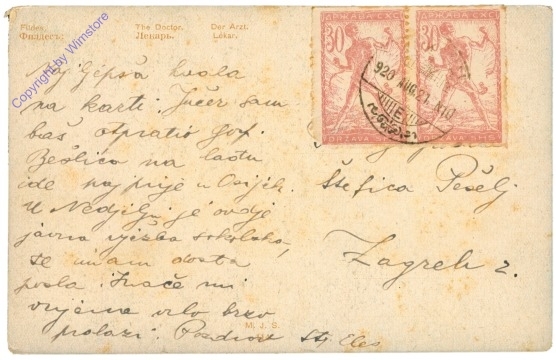 Fildes. The Doctor. Der Arzt.
Филдесъ. Лекарь. Lékař.
Copyright by Wimstore
30 ДРЖАВА СХС 30 ДРЖАВА СХС
DRŽAVA SHS DRŽAVA SHS
920 AUG. 21. X10
Najljepša hvala
na karti. Jučer sam
baš otpratio gosp.
na lađu
ide najprije u Osijek.
U Nedjelju je ovdje
javna vježba sokolska,
te imam dosta
posla. Inače mi
vrijeme vrlo brzo
prolazi. Pozdrav
Štefica
Zagreb
M. J. S.